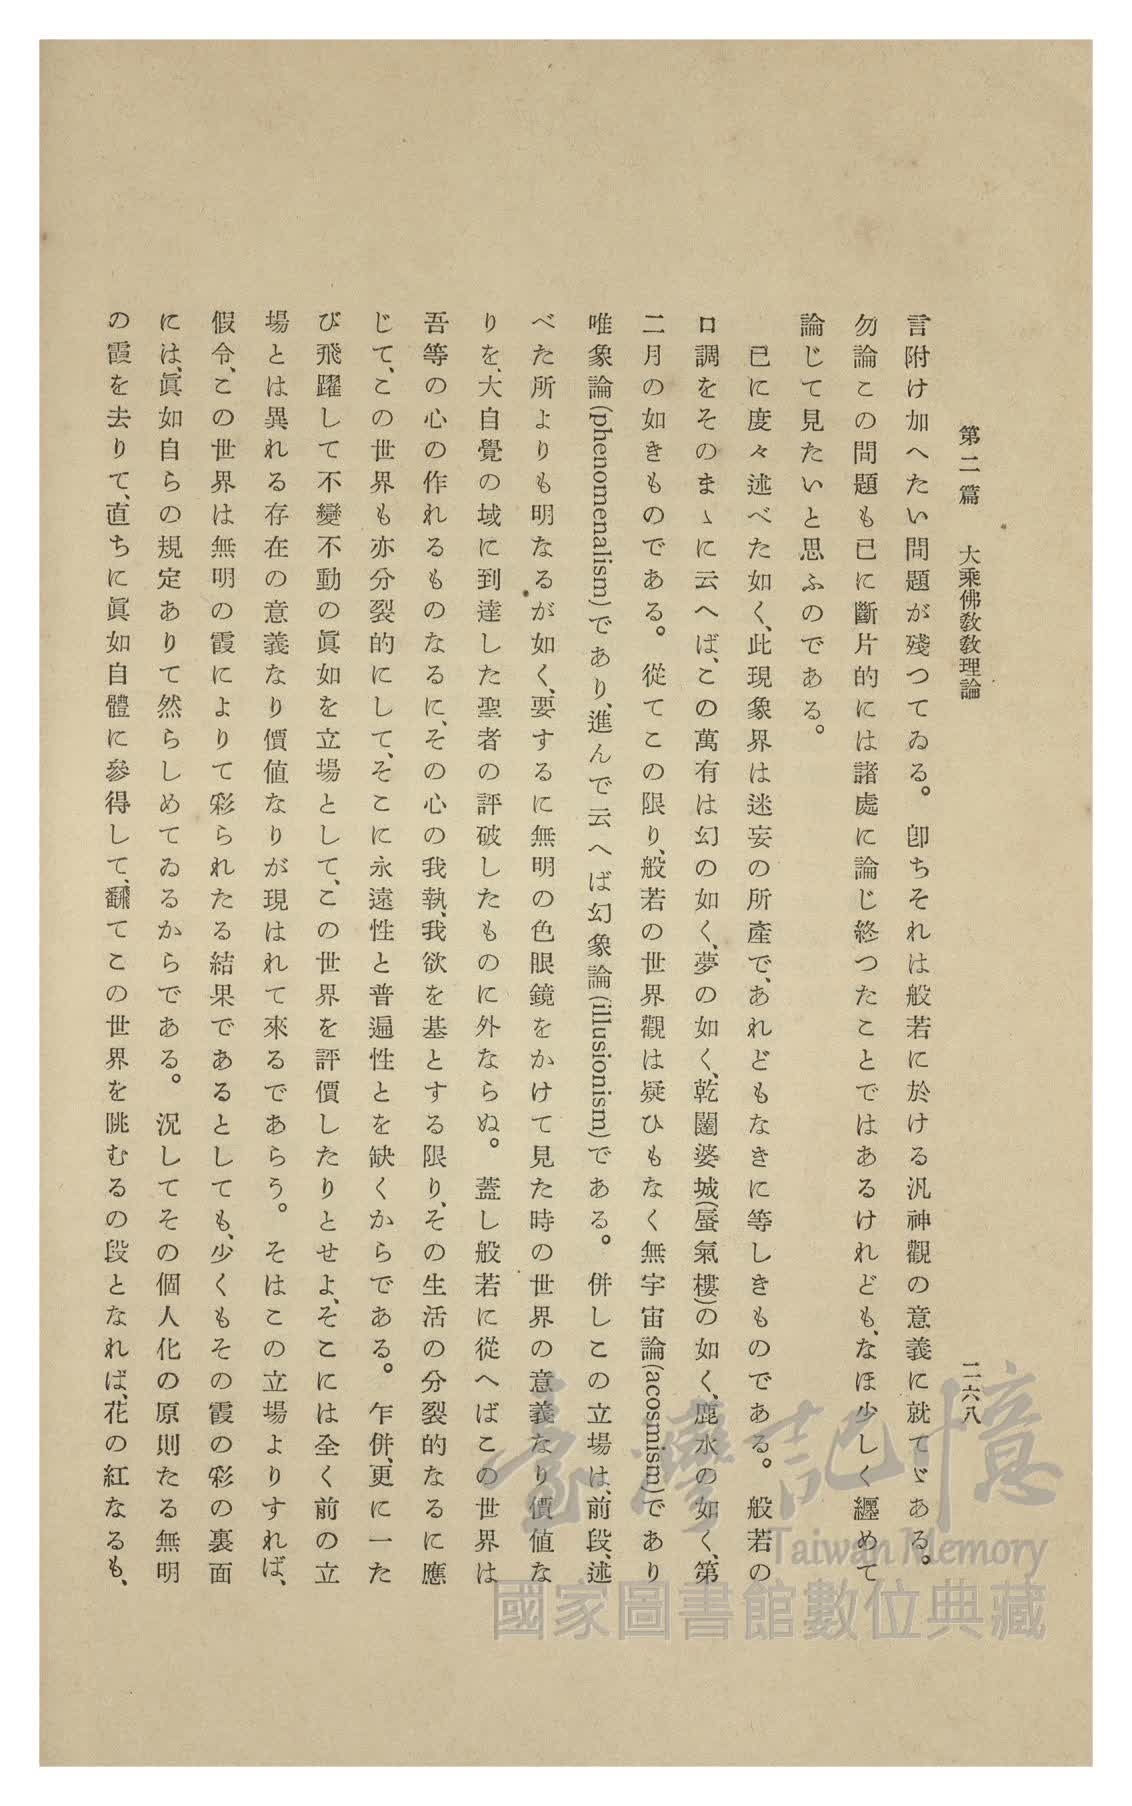 第二篇　大乘佛敎敎理論　二六八
言附け加へたい問題が殘つてゐる。卽ちそれは般若に於ける汎神觀の意義に就てゞある。
勿論この問題も已に斷片的には諸處に論じ終つたことではあるけれども、なほ少しく纒めて
論じて見たいと思ふのである。
已に度々述べた如く、此現象界は迷妄の所產で、あれどもなきに等しきものである。般若の
口調をそのまゝに云へば、この萬有は幻の如く、夢の如く、乾闥婆城(蜃氣樓)の如く、鹿水の如く、第
二月の如きものである。從てこの限り、般若の世界觀は疑ひもなく無宇宙論(acosmism)であり
唯象論(phenomenalism)であり、進んで云へば幻象論(illusionism)である。併しこの立場は、前段、述
べた所よりも明なるが如く、要するに無明の色眼鏡をかけて見た時の世界の意義なり價値な
りを、大自覺の域に到達した聖者の評破したものに外ならぬ。蓋し般若に從へばこの世界は
吾等の心の作れるものなるに、その心の我執、我欲を基とする限り、その生活の分裂的なるに應
じて、この世界も亦分裂的にして、そこに永遠性と普遍性とを缺くからである。乍併、更に一た
び飛躍して不變不動の眞如を立場として、この世界を評價したりとせよ、そこには全く前の立
場とは異れる存在の意義なり價値なりが現はれて來るであらう。そはこの立場よりすれば、
假令、この世界は無明の霞によりて彩られたる結果であるとしても、少くもその霞の彩の裏面
には、眞如自らの規定ありて然らしめてゐるからである。況してその個人化の原則たる無明
の霞を去りて、直ちに眞如自體に參得して、飜てこの世界を眺むるの段となれば、花の紅なるも、
臺灣記憶
Taiwan Memory
國家圖書館數位典藏